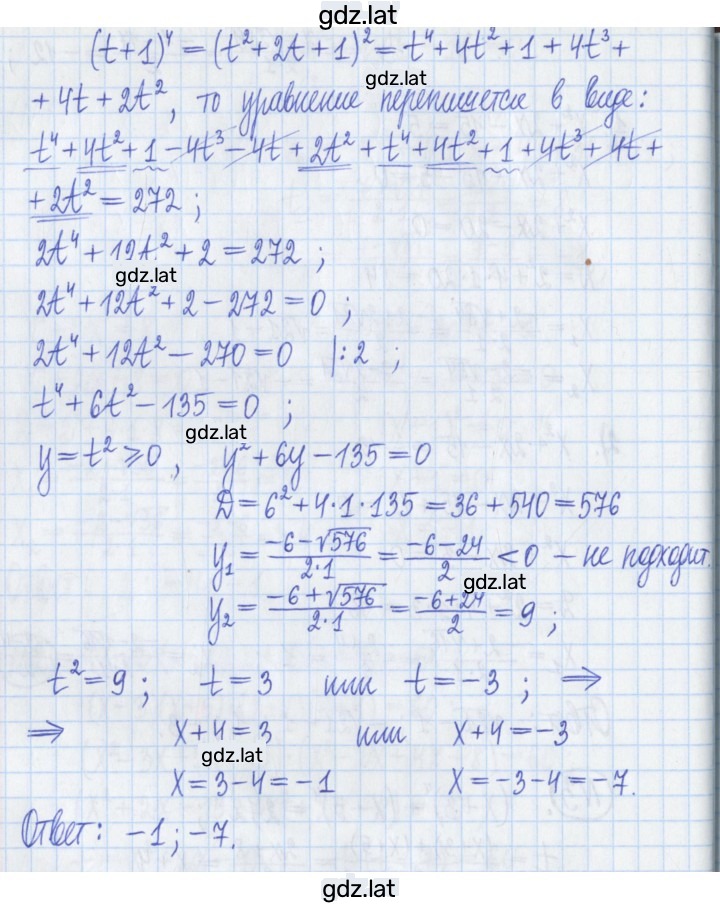 gdz.lat
(t+1)⁴ = (t²+2t+1)² = t⁴+4t²+1+4t³+
gdz.lat
+4t+2t², то уравнение перепишется в виде:
t⁴+4t²+1-4t³-4t+2t²+t⁴+4t²+1+4t³+4t+
+2t²=272;
2t⁴+12t²+2=272;
gdz.lat
2t⁴+12t²+2-272=0;
2t⁴+12t²-270=0 |:2;
t⁴+6t²-135=0;
gdz.lat
y=t²≥0, y²+6y-135=0
D=6²+4·1·135=36+540=576
y₁=(-6-√576)/(2·1)=(-6-24)/2<0 – не подходит.
gdz.lat
y₂=(-6+√576)/(2·1)=(-6+24)/2=9;
t²=9; t=3 или t=-3; ⇒
⇒ x+4=3 или x+4=-3
gdz.lat
x=3-4=-1 x=-3-4=-7.
Ответ: -1; -7.
gdz.lat